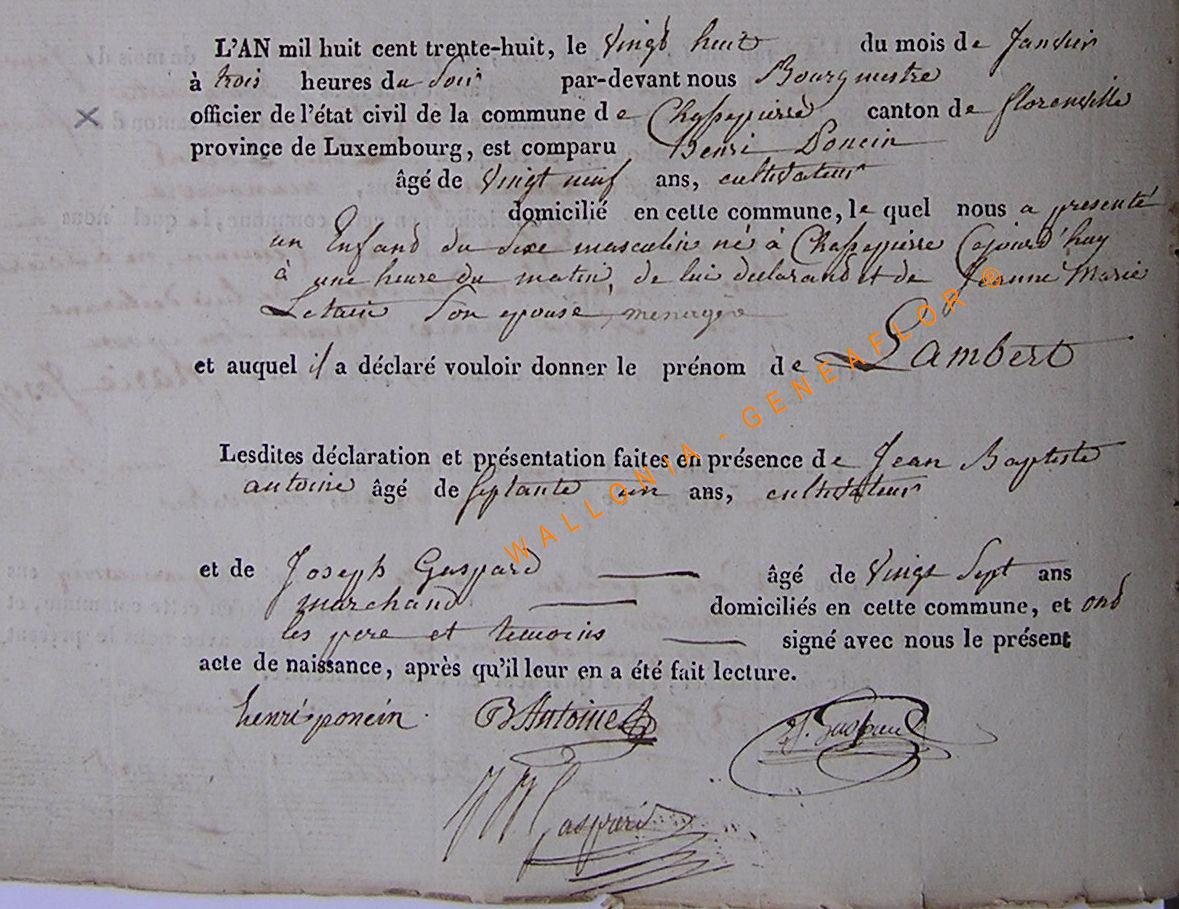 L'AN mil huit cent trente-huit, le vingt huit du mois de Janvier
à trois heures du Soir par-devant nous Bourgmestre
officier de l'état civil de la commune de Chassepierre canton de florenville
province de Luxembourg, est comparu Henri Poncin
âgé de vingt neuf ans, cultivateur
domicilié en cette commune, le quel nous a presenté
un Enfand du Sexe masculin né à Chassepierre cejourd'huy
à une heure du matin, de lui declarand et de Jeanne Marie
Son epouse, menagere
et auquel il a déclaré vouloir donner le prénom de Lambert
Lesdites déclaration et présentation faites en présence de Jean Baptiste
antoine âgé de Septante un ans, cultivateur
et de Joseph Gaspard âgé de vingt Sept ans
marchand domiciliés en cette commune, et ond
les pere et temoins signé avec nous le présent
acte de naissance, après qu'il leur en a été fait lecture.
henri poncin B Antoine J. Gaspard
Gaspard
WALLONIA - GENEAFLOR ®